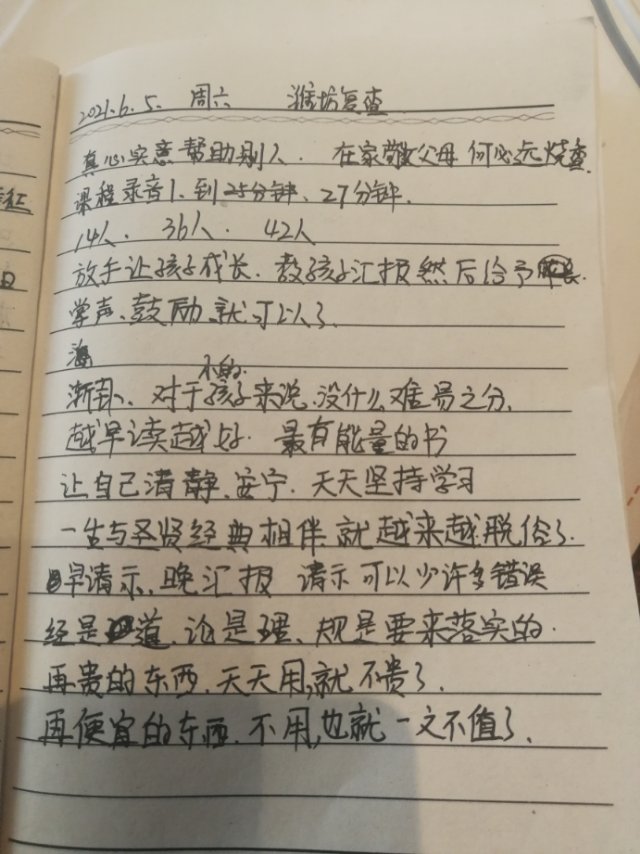 2021.6.5. 周六 潍坊复查
真心实意帮助别人. 在家敬父母何必远烧查.
课程录音1、到25分钟、27分钟.
14人. 36人. 42人
放手让孩子成长. 教孩子汇报然后给予
掌声、鼓励、就可以了.
海
小的.
浙卦、对于孩子来说、没什么难易之分.
越早读越好. 最有能量的书
让自己清静、安宁. 天天坚持学习
一生与圣贤经典相伴就越来越脱俗了.
早请示、晚汇报 请示可以少许多错误
经是道、论是理、规是要来落实的.
再贵的东西、天天用,就不贵了.
再便宜的东西、不用,也就一文不值了.